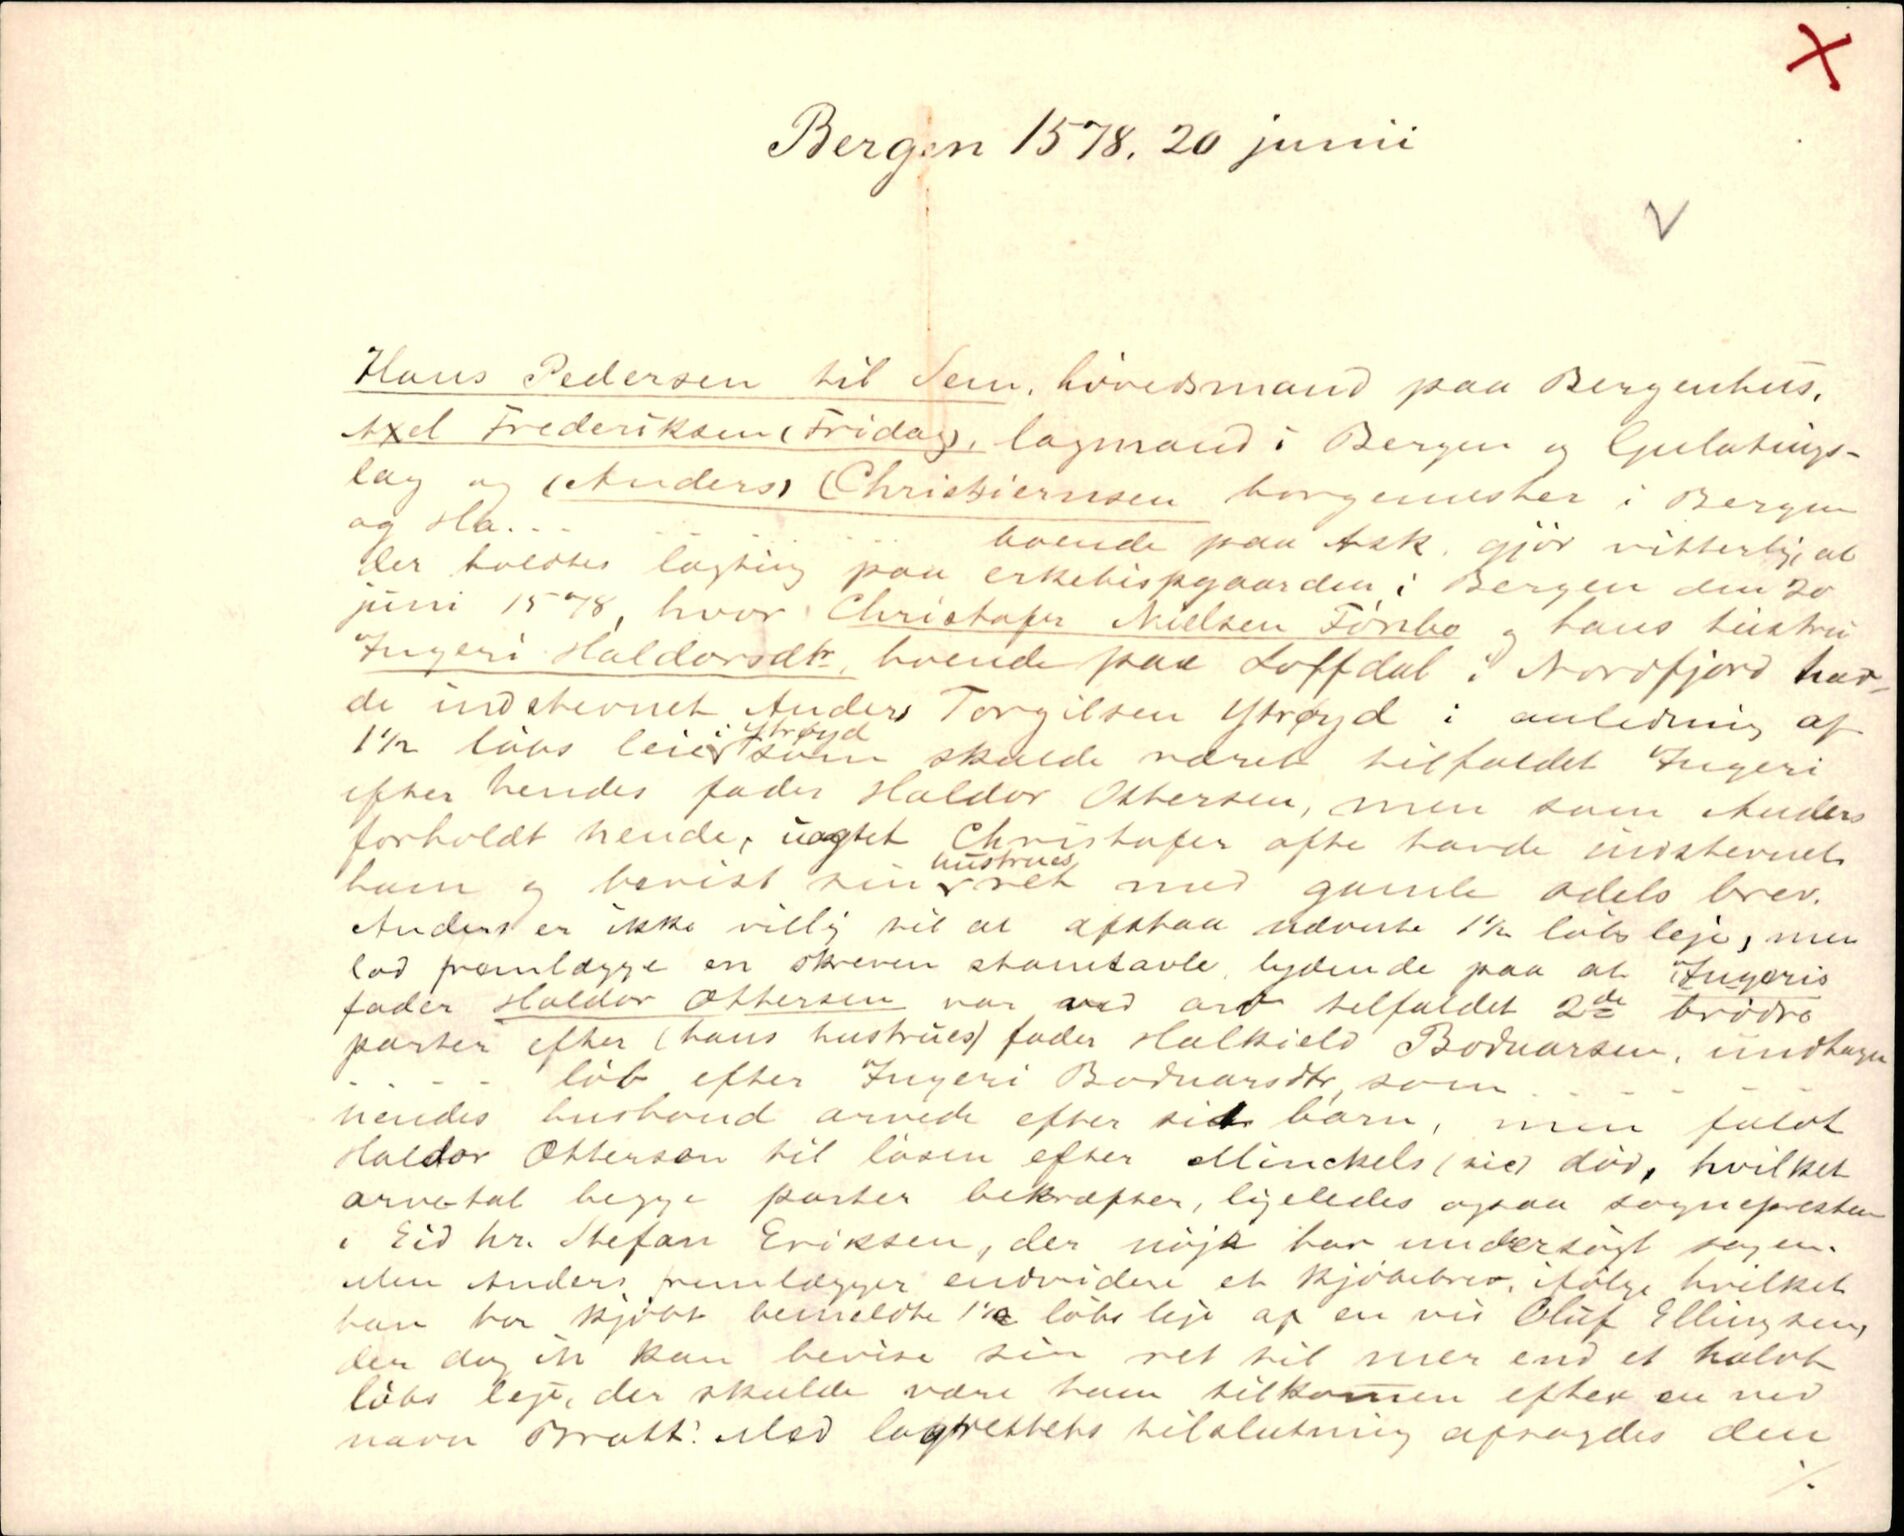 Bergen 1578. 20 junii
Hans Pedersen til Sem, hövedsmand paa Bergenhus,
Axel Frederiksen (Friday), lagmand i Bergen og Gulatings-
lag og (Anders) Christiernsen borgemester i Bergen
og Ha... boende paa Ask, gjör vitterligt, at
der holdtes lagting paa erkebispgaarden i Bergen den 20
juni 1578, hvor Christofer Nielsen Förbo og hans hustru
Ingeri Haldorsdtr, boende paa Loffdal i Nordfjord had-
de indstevnet Anders Torgilsen Ytrøyd i anledning af
1½ löbs leie i Ytrøyd som skulde været tilfaldet Ingeri
efter hendes fader Haldor Ottersen, men som Anders
forholdt hende, uagtet Christofer ofte havde indstevnet
ham og bevist sin hustrues ret med gamle odels brev.
Anders er ikke villig til at afstaa nævnte 1½ löbs leje, men
lod fremlægge en skreven stamtavle, lydende paa at Ingeris
fader Haldor Ottersen var ved arv tilfaldet 2de brödre
parter efter (hans hustrues) fader Halkield Bodvarsen, undtagen
- - - - - löb efter Ingeri Bodvarsdtr, som - - - -
hendes husbond arvede efter sit barn, men faldt
Haldor Otterson til lösen efter Minckels (sic) död, hvilket
arvetal begge parter bekræfter, ligeledes ogsaa sognepresten
i Eid hr. Stefan Eriksen, der nöje har undersögt sagen.
Men Anders fremlægger endvidere et kjöbebrev, ifölge hvilket
han har kjöbt bemeldte 1½ löbs leje af en vis Oluf Ellingsen,
der dog ik kan bevise sin ret til mer end et halvt
löbs leje, der skulde være ham tilkommen efter en ved
navn Bratt. Med lagrettets tilslutning afsagdes den
./.